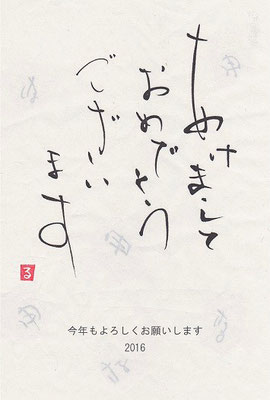 あけまして
おめでとう
ございい
ます
る
今年もよろしくお願いします
2016